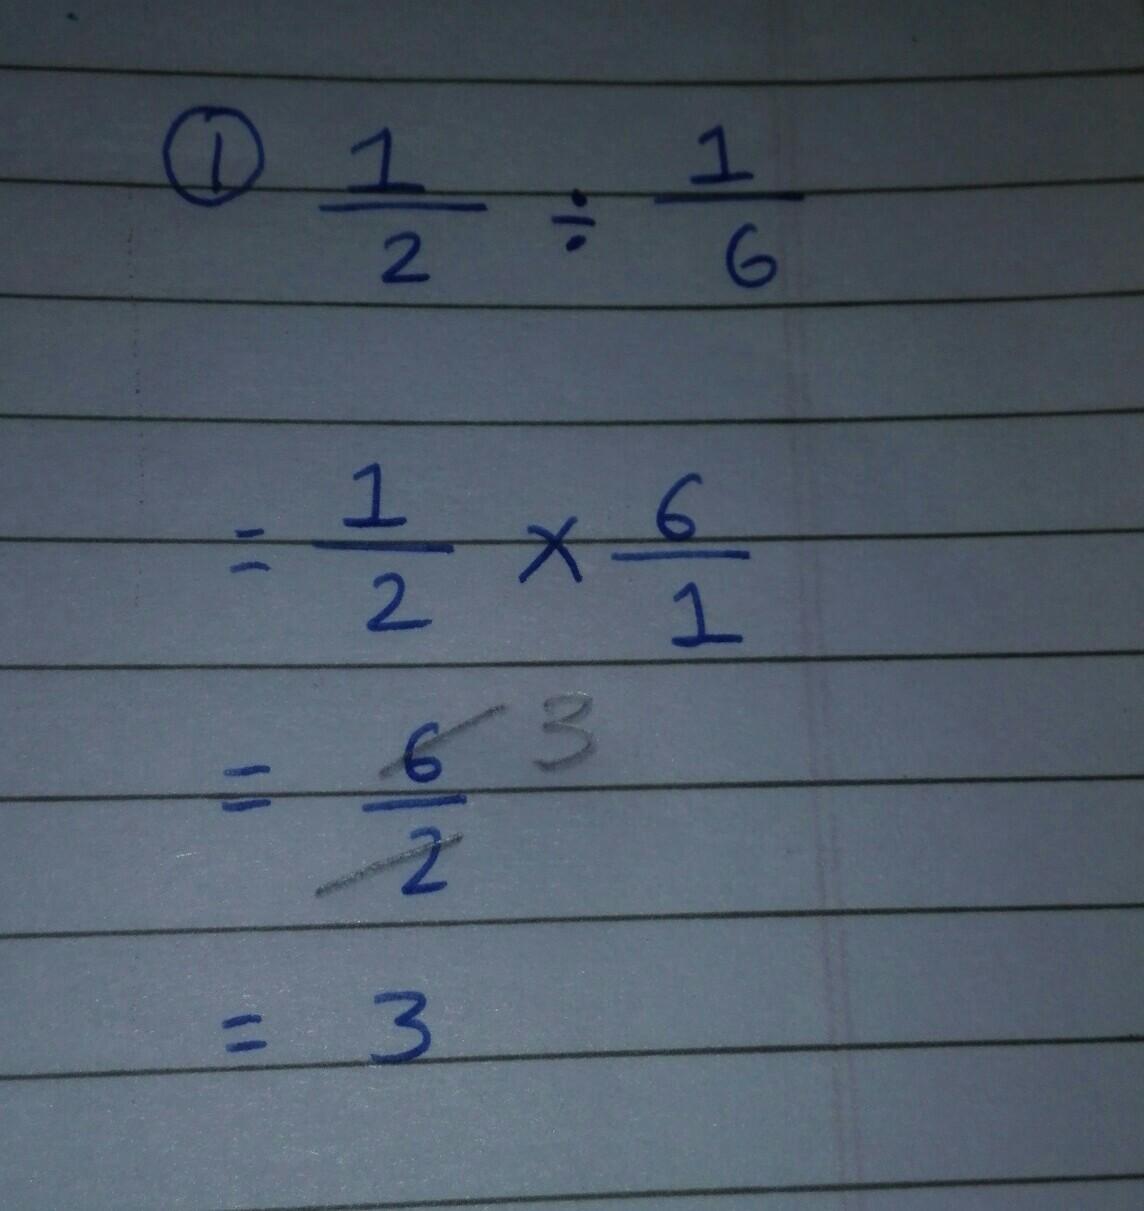 ① 1/2 ÷ 1/6
= 1/2 × 6/1
= 6/2 3
= 3